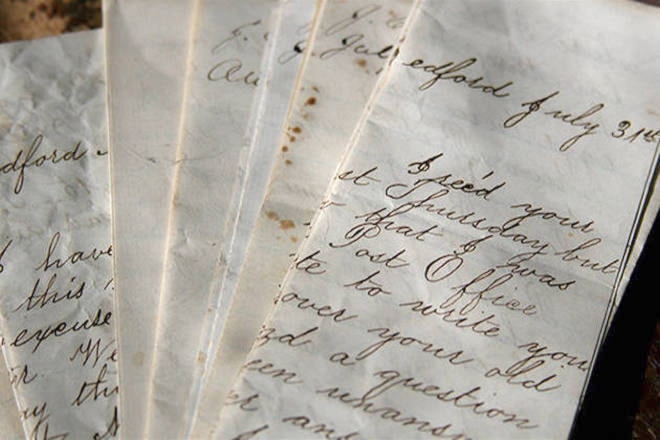 dford
have
this
excuse
We
J.
Au
J. July
edford July 31st
I rec'd your
st Thursday but
that I was
Post Office
te to write you
over your old
d a question
een unans